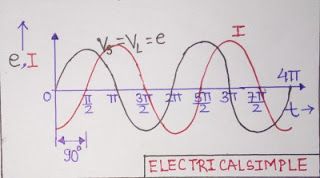 V_S = V_L = e
I
e, I
4π
0 π/2 π 3π/2 2π 5π/2 3π 7π/2 t
90°
ELECTRICALSIMPLE